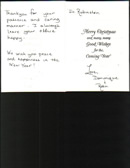 Thankyou for your
patience and caring
manner. I always
leave your office
happy.
We wish you peace
and happiness in the
New Year!
Dr Rubinstein
Merry Christmas
and many, many
Good Wishes
for the
Coming Year!
Love,